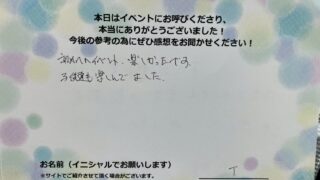 本日はイベントにお呼びくださり、
本当にありがとうございました！
今後の参考の為にぜひ感想をお聞かせください！
楽しかったです。
子供達も楽しんでました。
お名前（イニシャルでお願いします）
T
※サイトでご紹介させて頂く場合がございます。